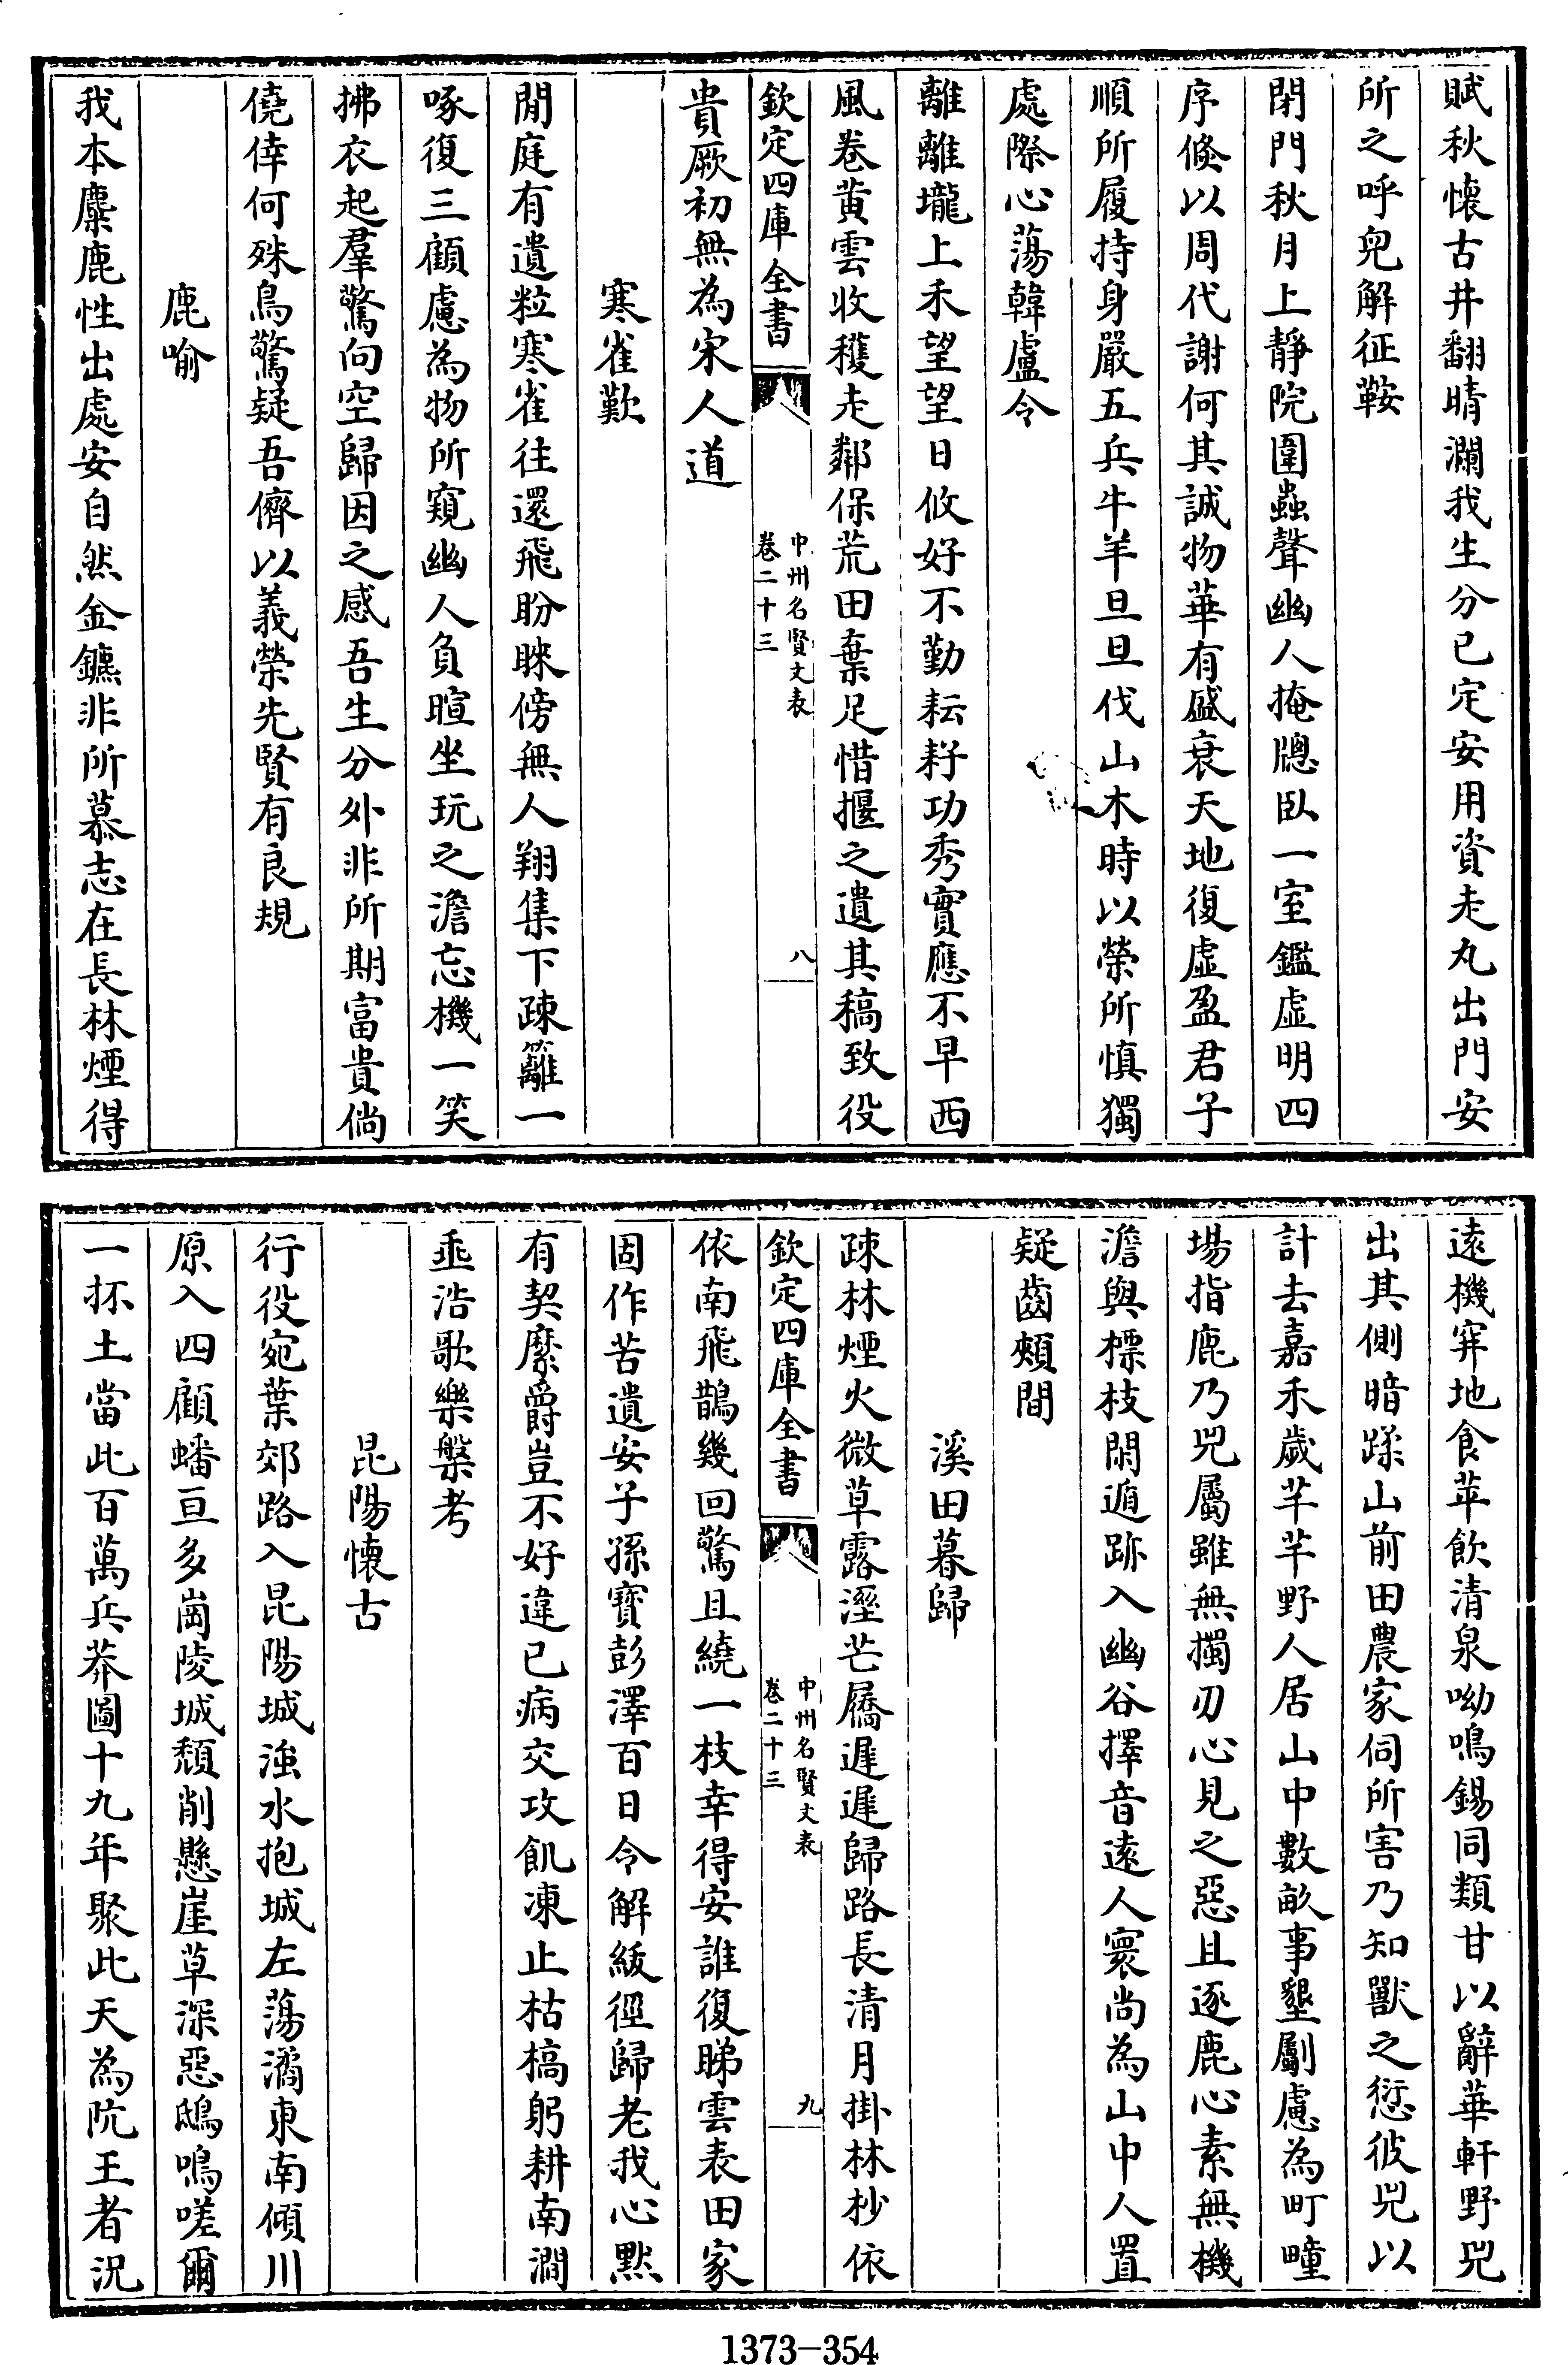 賦秋懷古井翻晴瀾我生分已定安用資走丸出門安
所之呼兒解征鞍
閉門秋月上靜院圍蟲聲幽人掩牕臥一室鑑虛明四
序倏以周代謝何其誠物華有盛衰天地復虛盈君子
順所履持身嚴五兵牛羊旦旦伐山木時以榮所慎獨
處際心蕩韓盧令
離離壠上禾望望日攸好不勤耘耔功秀實應不早西
風卷黄雲收穫走鄰保荒田棄足惜揠之遺其稿致役
欽定四庫全書
中州名賢文表
卷二十三
八
貴厥初無為宋人道
寒雀歎
閒庭有遺粒寒雀往還飛盼睞傍無人翔集下疎籬一
啄復三顧慮為物所窺幽人負暄坐玩之澹忘機一笑
拂衣起羣驚向空歸因之感吾生分外非所期富貴倘
僥倖何殊鳥驚疑吾儕以義榮先賢有良規
鹿喻
我本麋鹿性出處安自然金鑣非所慕志在長林煙得
遠機穽地食苹飲清泉呦鳴錫同類甘以辭華軒野兕
出其側暗蹂山前田農家伺所害乃知獸之愆彼兕以
計去嘉禾歲芊芊野人居山中數畝事墾劚慮為町疃
場指鹿乃兕屬雖無擉刃心見之惡且逐鹿心素無機
澹與標枝閑遁跡入幽谷擇音遠人寰尚為山中人置
疑齒頰間
溪田暮歸
疎林煙火微草露溼芒屩遲遲歸路長清月掛林杪依
欽定四庫全書
中州名賢文表
卷二十三
九
依南飛鵲幾回驚且繞一枝幸得安誰復睇雲表田家
固作苦遺安子孫寶彭澤百日令解緩徑歸老我心黙
有契縻爵豈不好違已病交攻飢凍止枯槁躬耕南澗
垂浩歌樂槃考
昆陽懷古
行役宛葉郊路入昆陽城滍水抱城左蕩潏東南傾川
原入四顧蟠亘多崗陵城頹削懸崖草深惡鴟鳴嗟爾
一抔土當此百萬兵莽圖十九年聚此天為阬王者況
1373-354